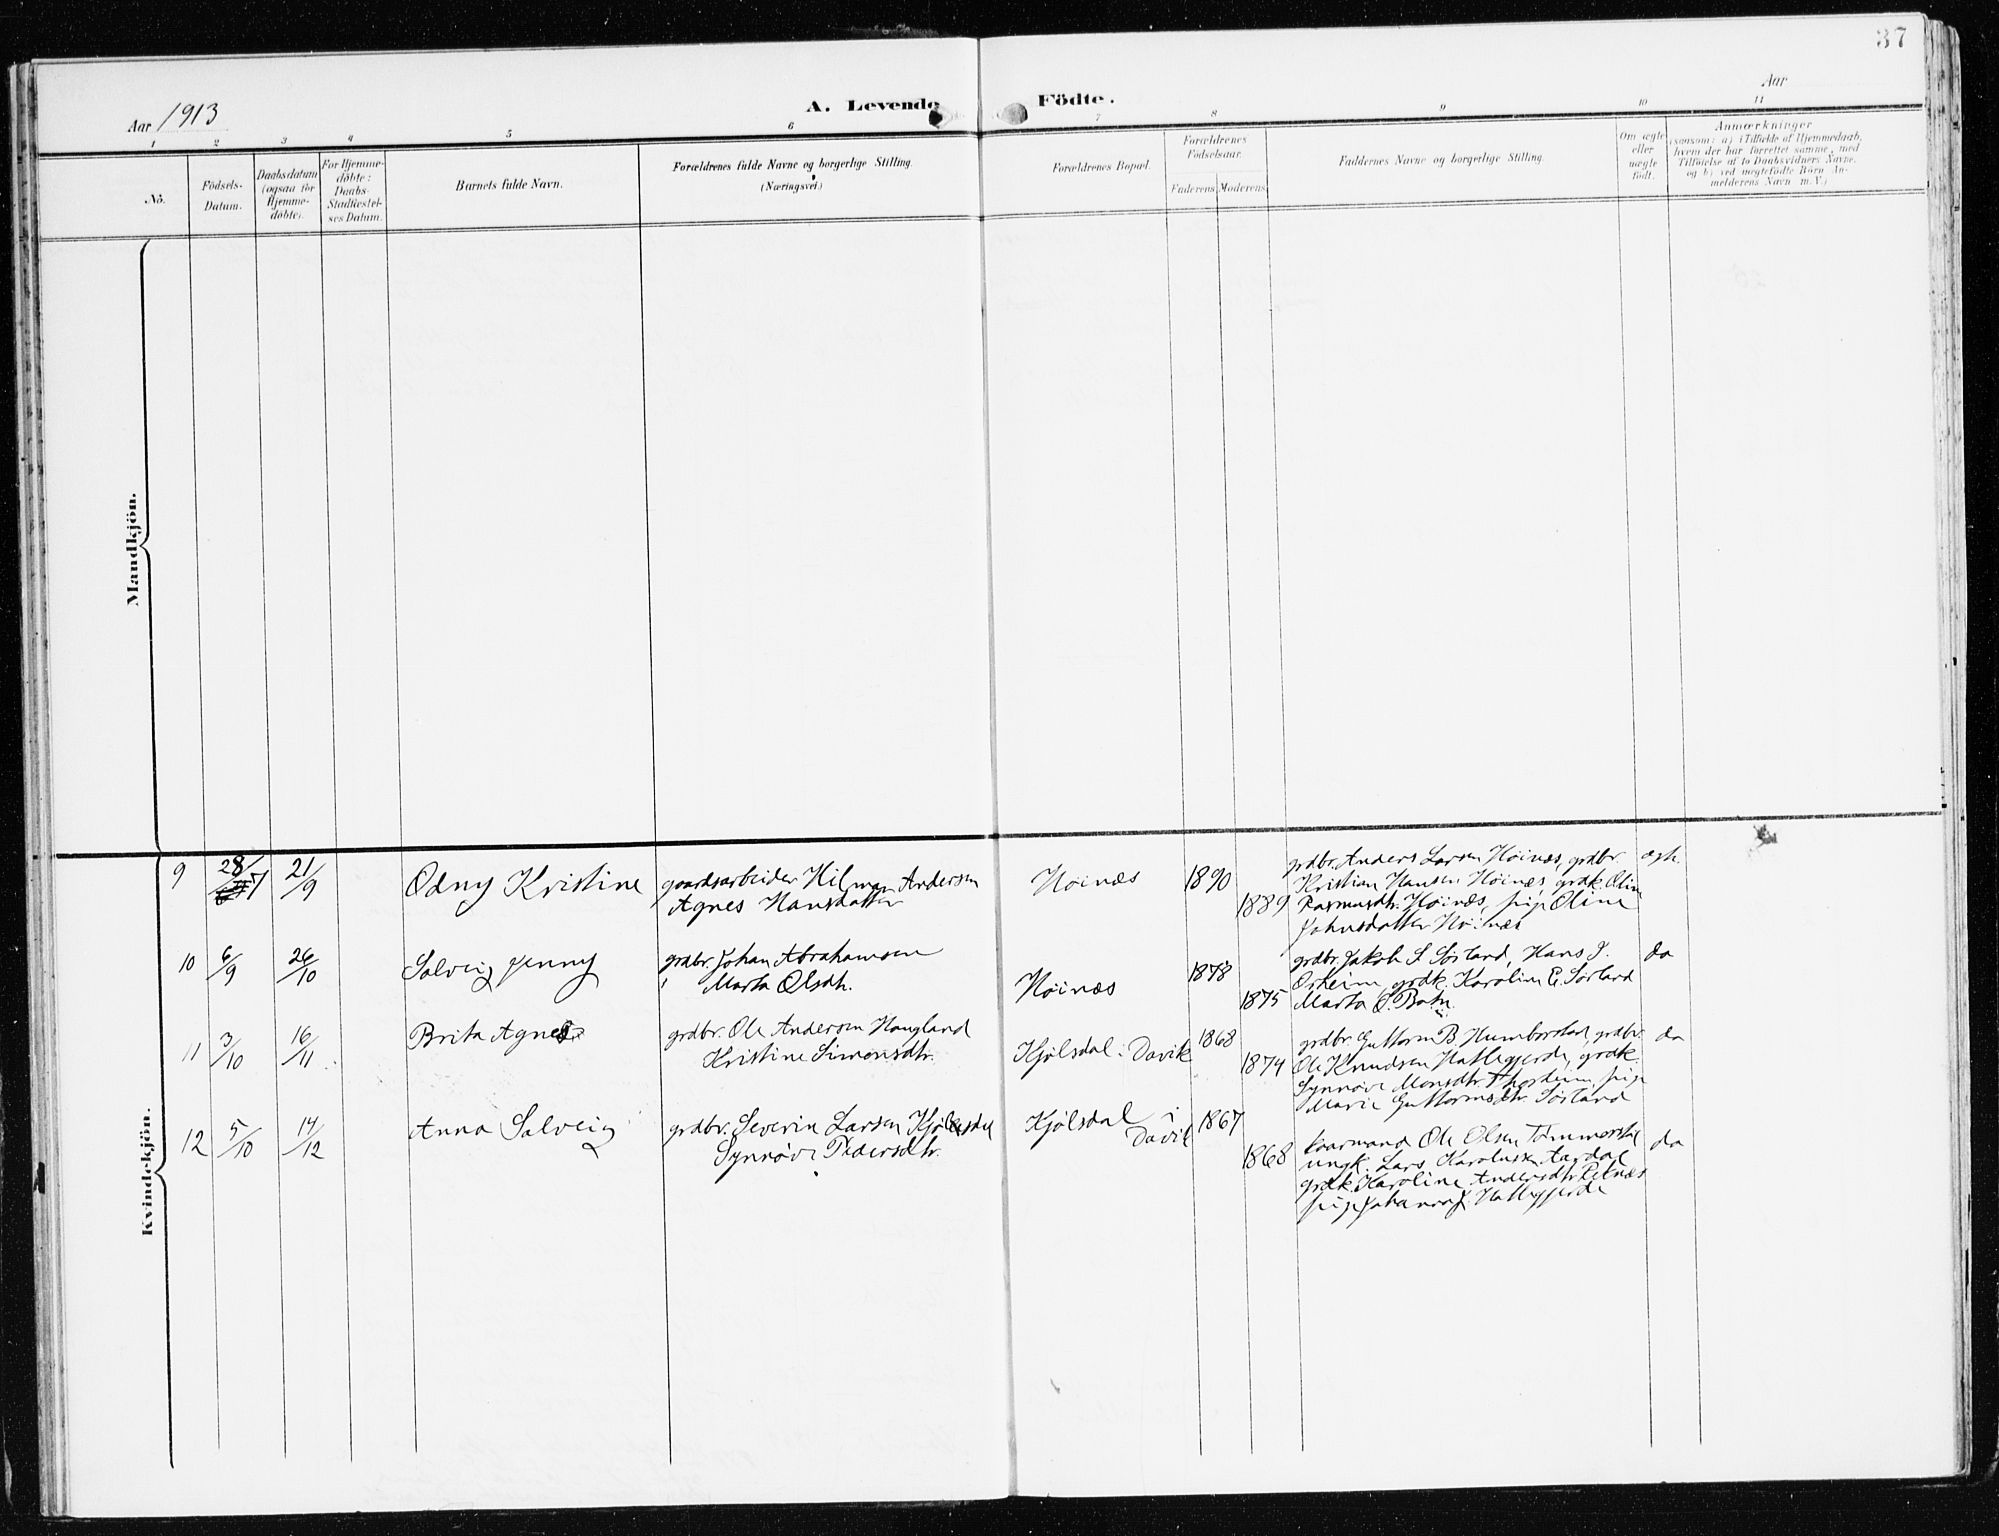 37
Aar 1913
A. Levende Födte.
Aar
1 2 3 4 5 6 7 8 9 10 11
No.
Födsels-
Datum.
Daabsdatum
(ogsaa for
Hjemme-
döbte).
For Hjemme-
döbte:
Daabs-
Stadfæstel-
ses Datum.
Barnets fulde Navn.
Forældrenes fulde Navne og borgerlige Stilling.
(Næringsvei.)
Forældrenes Bopæl.
Forældrenes
Födselsaar.
Faderens Moderens
Faddernes Navne og borgerlige Stilling.
Om ægte
eller
uægte
födt.
Anmærkninger
(saasom: a) i Tilfælde af Hjemmedaab,
hvem der har forrettet samme, med
Tilföielse af to Daabsvidners Navne.
og b) ved uægtefödte Börn An-
melderens Navn m.V.)
Mandkjön.
Kvindekjön.
9 28/7 21/9 Odny Kristine gaardsarbeider Hilmar Andersen
Agnes Hansdatter
Höinæs 1890
1889
grdbr. Anders Larsen Höinæs, grdbr.
Kristian Hansen Höinæs, grdk. Oline
Rasmusdtr. Höinæs, pige Oline
Johnsdatter Höinæs
ægte.
10 6/9 26/10 Solveig Jenny grdbr. Johan Abrahamsen
Marta Olsdtr.
Höinæs 1878
1875
grdbr. Jakob S Sörland, Hans J.
Osheim, grdk. Karoline E. Sörland
Marta O. Botn.
do
11 3/10 16/11 Brita Agnes grdbr. Ole Andersen Haugland
Kristine Simonsdtr.
Kjölsdal i Davik 1868
1874
grdbr. Guttorm B. Humborstad, grdbr.
Ole Knudsen Hattegjerde, grdk.
Synnöve Monsdtr. pige
Marie Guttormsdtr Sörland
do
12 5/10 14/12 Anna Solveig grdbr. Severin Larsen Kjölsdal
Synnöve Pedersdtr.
Kjölsdal i
Davik
1867
1868
kaarmand Ole Olsen
ungk. Lars Karolusen Aardal
grdk. Karoline Andersdtr Reknæs
pige Johanna J. Hattegjerde
do